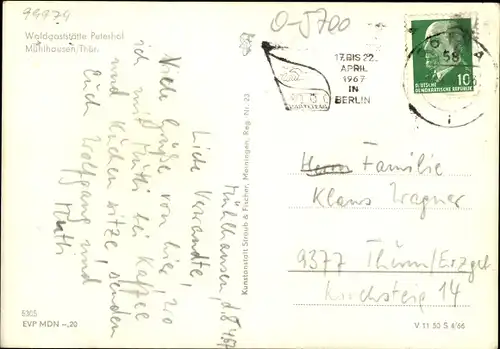 99979
Waldgaststätte Peterhof
Mühlhausen/Thür.
Mühlhausen, d. 8.4.67
Liebe Verwandte,
Viele Grüße von hier, wo
ich mit Mutti bei Kaffee
und Kuchen sitze, senden
Euch Wolfgang und
Mutti
6305
EVP MDN –,20
Kunstanstalt Straub & Fischer, Meiningen, Reg.-Nr. 23
0-5700
17. BIS 22.
APRIL
1967
IN
BERLIN
58
DEUTSCHE
DEMOKRATISCHE REPUBLIK
10
Herrn Familie
Klaus Wagner
9377 Thum/Erzgeb.
Kirchsteig 14
V 11 50 S 4/66